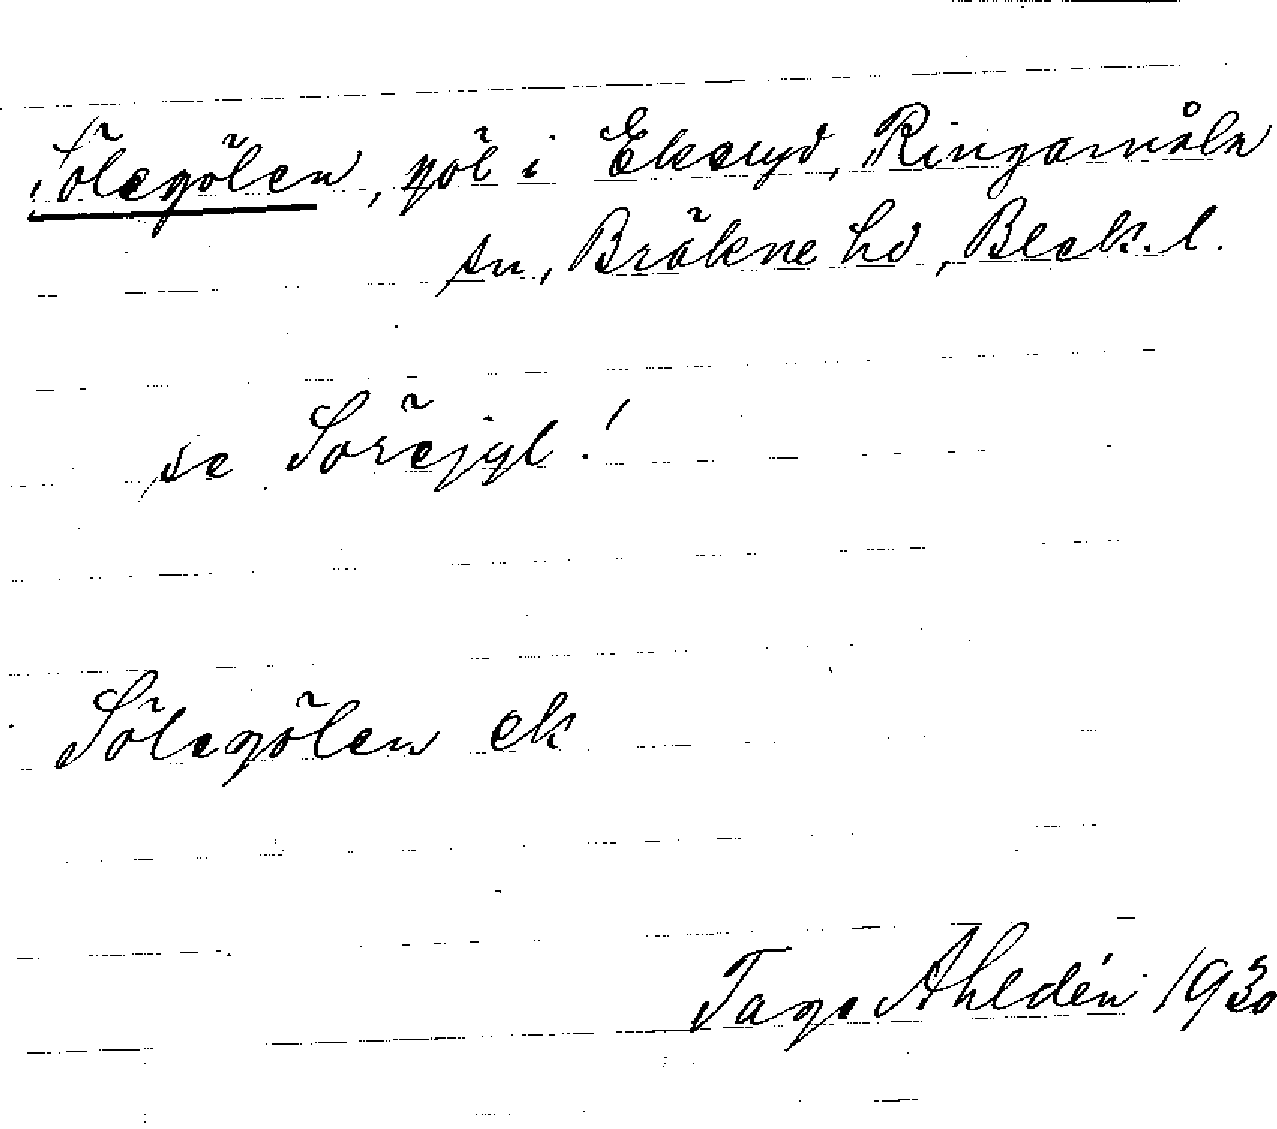 Sölegölen, göl i Ekeryd, Ringamåla
sn, Bräkne hd, Blek. l.
se Sorējgl!
Sölegölen ek
Tage Ahldén 1930